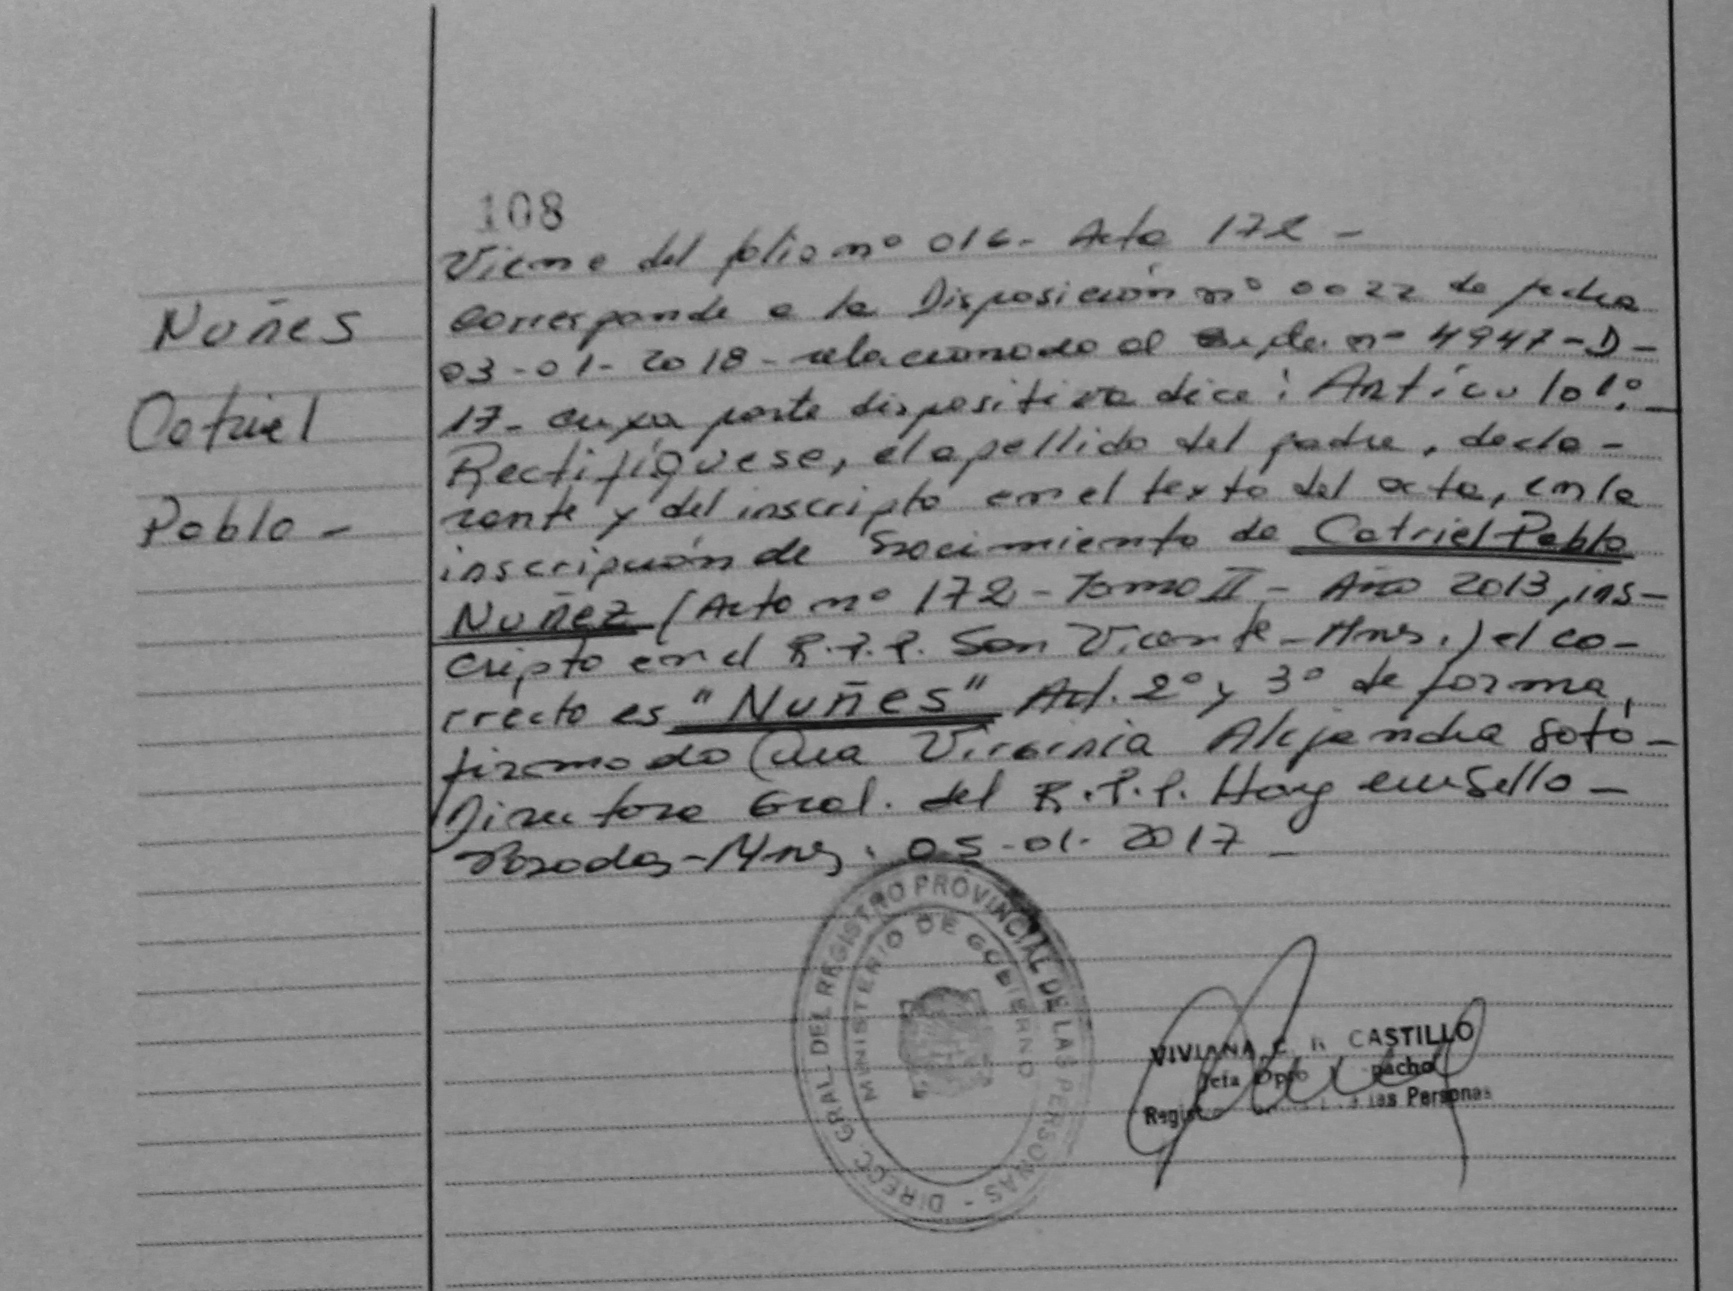 108
Viene del folio nº 016- Acta 172-
Nuñes
Catriel
Pablo-
corresponde a la Disposición nº 0022 de fecha
03-01-2018- relacionado al Expte. nº 4947-D-
17- cuya parte dispositiva dice: Artículo 1º.-
Rectifíquese, el apellido del padre, decla-
rante y del inscripto en el texto del acta, en la
inscripción de Nacimiento de Catriel Pablo
Nuñez (Acta nº 172- Tomo II- Año 2013, ins-
cripto en el R.P.P. San Vicente-Mnes.) el co-
rrecto es "Nuñes" Art. 2º y 3º de forma,
firmado Virginia Alejandra Soto-
Directora Gral. del R.P.P. Hay un Sello-
Posadas-Mnes, 05-01-2017-
DIRECC. GRAL. DEL REGISTRO PROVINCIAL DE LAS PERSONAS -
MINISTERIO DE GOBIERNO
VIVIANA C. R CASTILLO
Jefa Dpto pacho
Regist las Personas